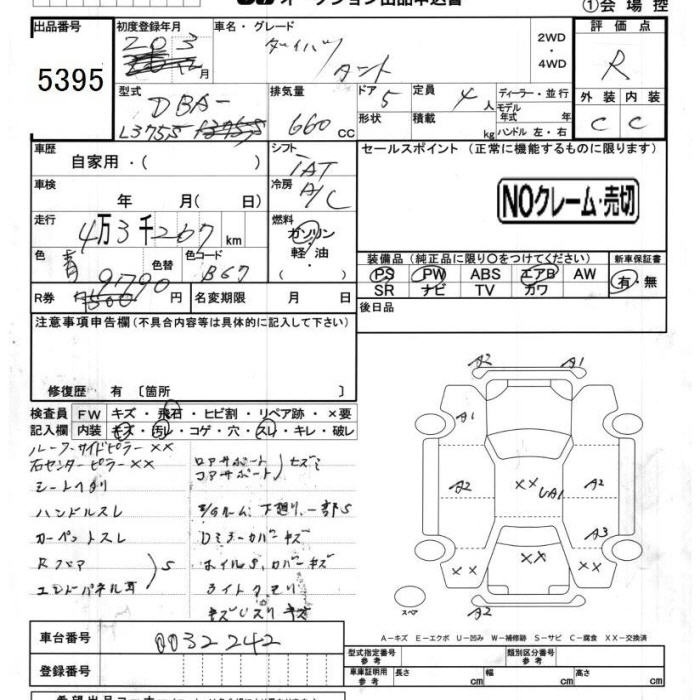 オークション出品申込書
①会場控
出品番号
5395
初度登録年月
20 3
月
車名・グレード
ダイハツ
タント
2WD
・
4WD
評価点
R
外装 内装
C C
型式
DBA-
L375S
排気量
660
cc
ドア
5
定員
4
人
ディーラー・並行
モデル
年式 年
形状
積載
kg
ハンドル 左・右
車歴
自家用・( )
シフト
IAT
車検
年 月( 日)
冷房
A/C
走行
4万3千267
km
燃料
ガソリン
・
軽油
・
( )
色
青
色替
色コード
B67
R券
9790
円
名変期限 月 日
セールスポイント (正常に機能するものに限ります)
NOクレーム・売切
装備品 (純正品に限り○をつけてください)
新車保証書
PS PW ABS エアB AW
有・無
SR ナビ TV カワ
後日品
注意事項申告欄(不具合内容等は具体的に記入して下さい)
修復歴 有 〔箇所 〕
検査員 FW キズ・飛石・ヒビ割・リペア跡・×要
記入欄 内装 キズ・汚レ・コゲ・穴・スレ・キレ・破レ
ルーフサイドピラー ××
右センターピラー ××
シートヘタリ
ハンドルスレ
カーペットスレ
Rフロア
エンドパネル耳
S
ロアサポート
コアサポート
キズミ
下廻り、一部S
Dミラーカバーキズ
ホイルS、カバーキズ
ライトクモリ
A2
A1
A1
A2
×× UA1
A2
A3
××
××
××
A2
スペア
A-キズ E-エクボ U-凹み W-補修跡 S-サビ C-腐食 XX-交換済
車台番号
0032242
登録番号
型式指定番号
参考
類別区分番号
参考
車庫証明用
参考
長さ
cm
幅
cm
高さ
cm